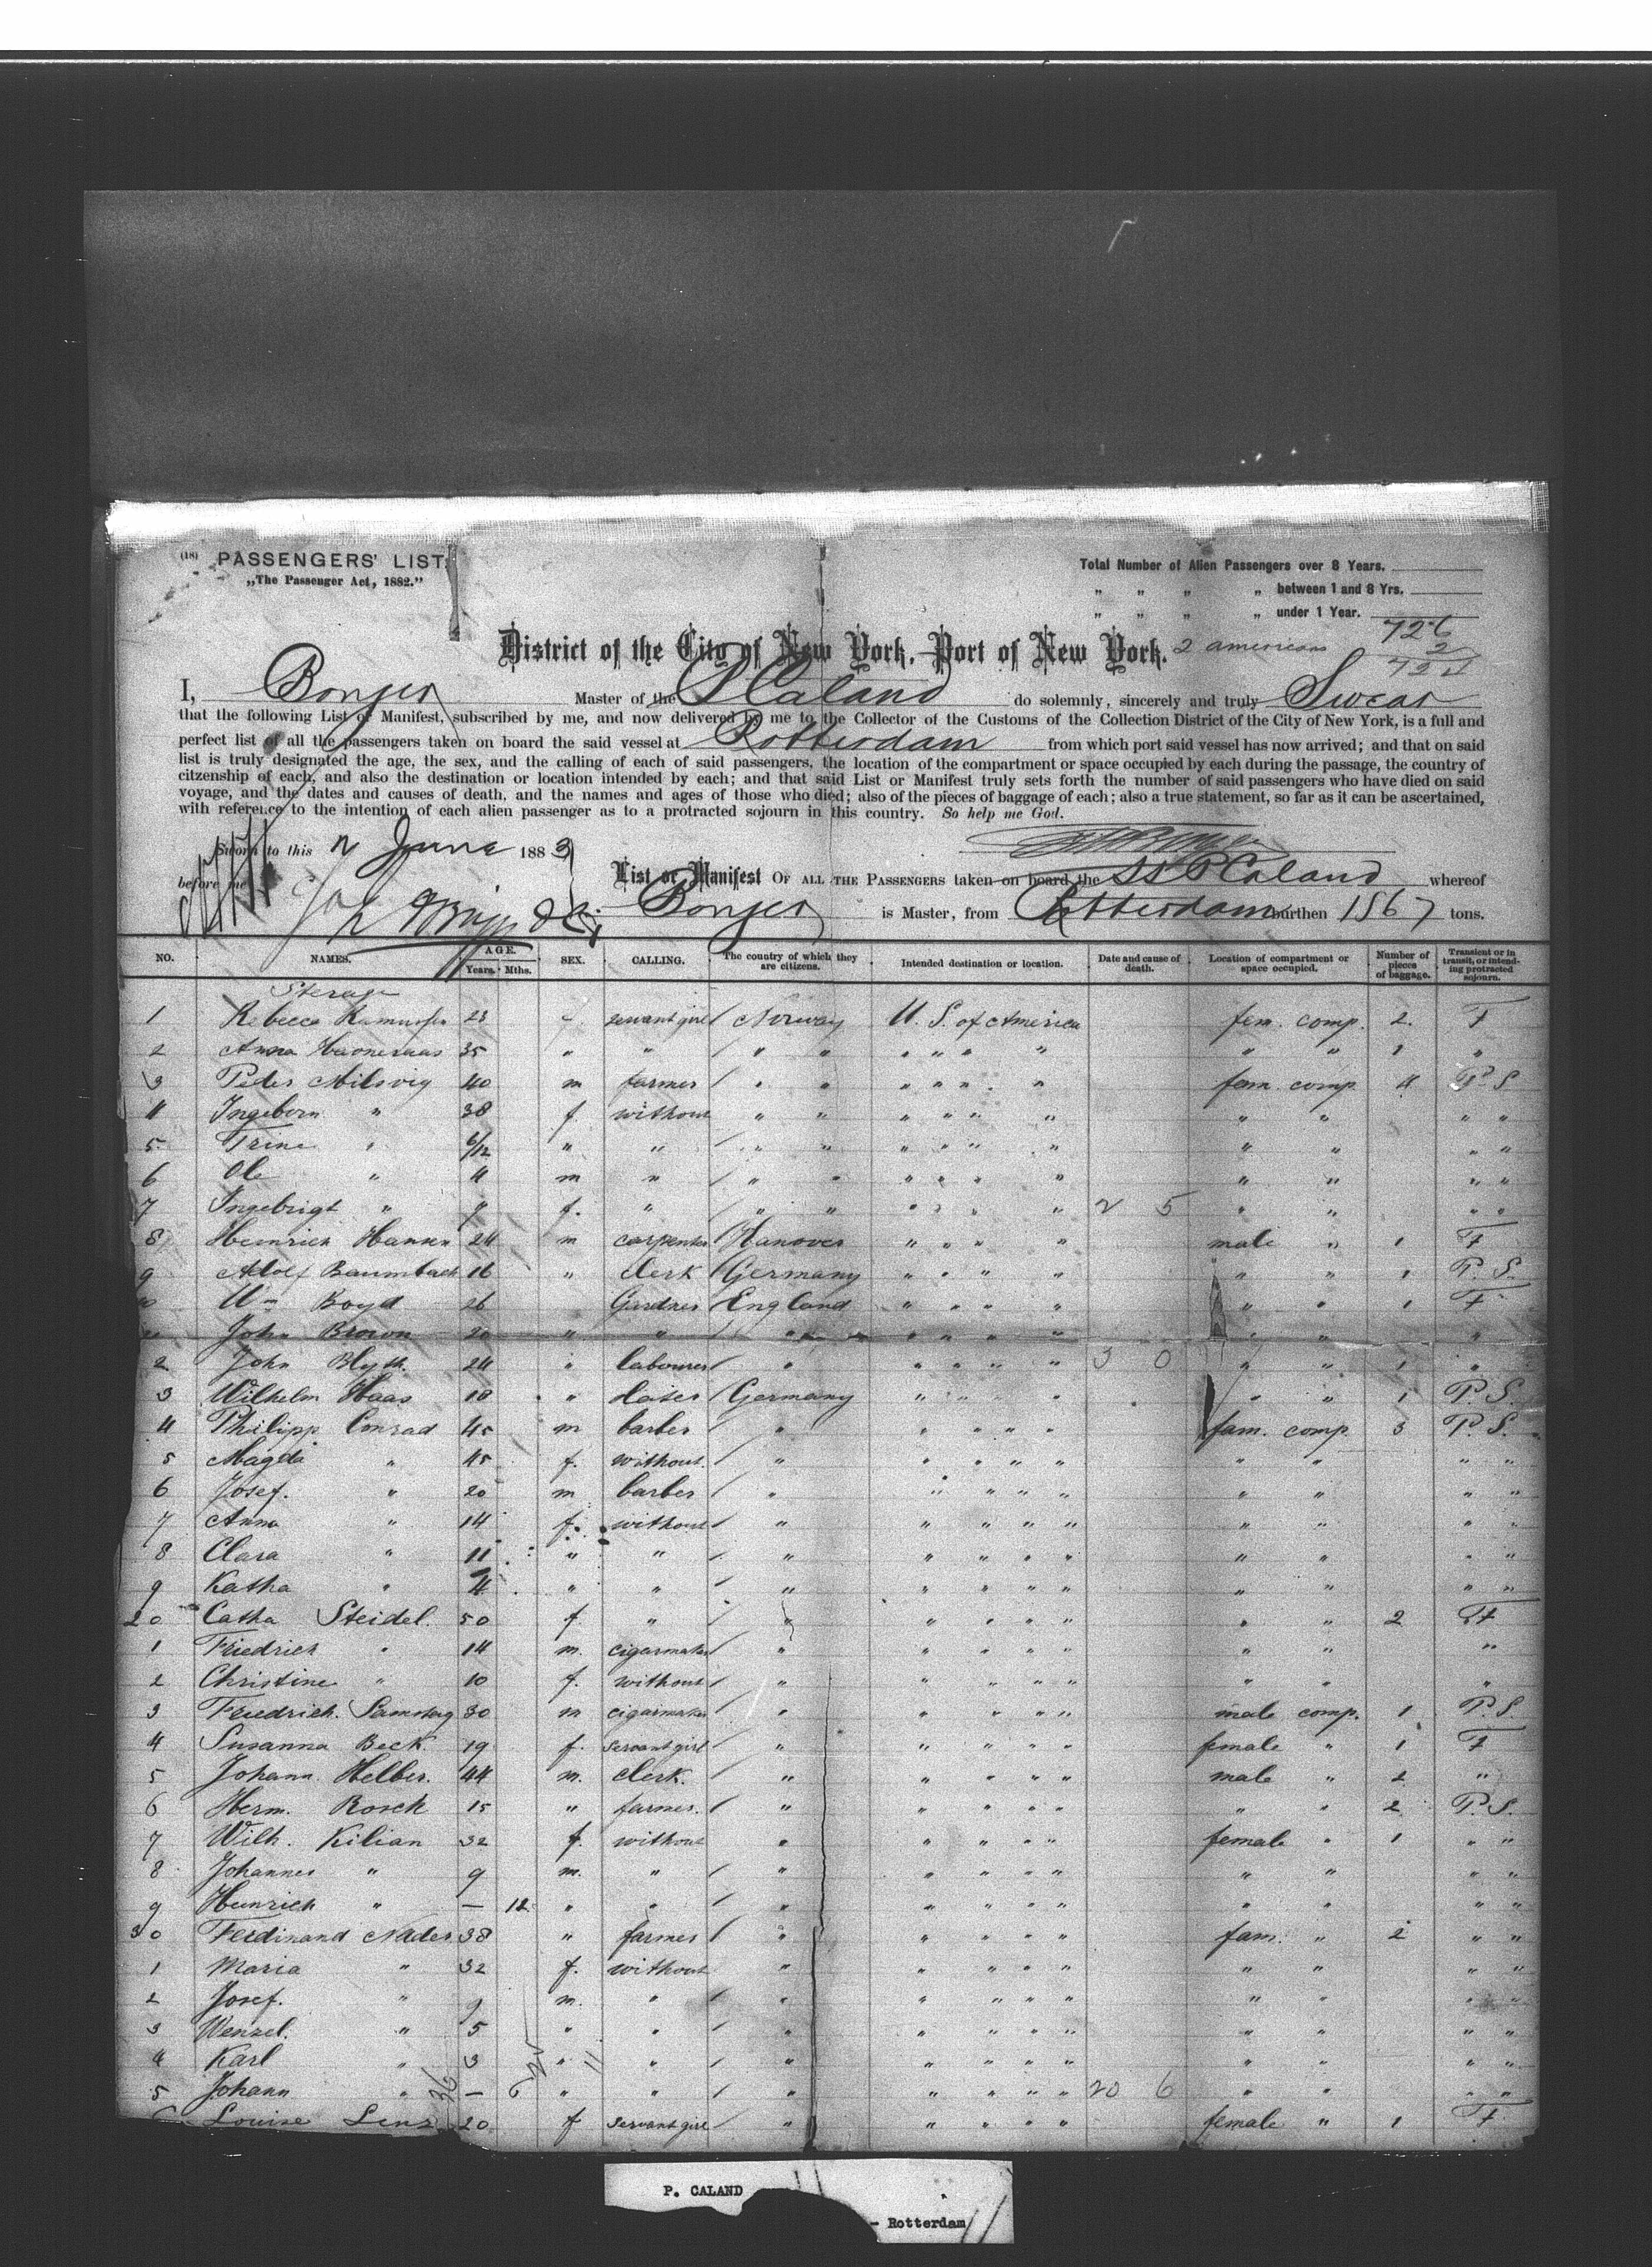 (18) PASSENGERS' LIST.
„The Passenger Act, 1882."
Total Number of Alien Passengers over 8 Years.
„ „ „ „ between 1 and 8 Yrs.
„ „ „ „ under 1 Year.
726
2
District of the City of New York, Port of New York. 2 americans
I, Bonjer Master of the P Caland do solemnly, sincerely and truly Swear
that the following List or Manifest, subscribed by me, and now delivered by me to the Collector of the Customs of the Collection District of the City of New York, is a full and
perfect list of all the passengers taken on board the said vessel at Rotterdam from which port said vessel has now arrived; and that on said
list is truly designated the age, the sex, and the calling of each of said passengers, the location of the compartment or space occupied by each during the passage, the country of
citzenship of each, and also the destination or location intended by each; and that said List or Manifest truly sets forth the number of said passengers who have died on said
voyage, and the dates and causes of death, and the names and ages of those who died; also of the pieces of baggage of each; also a true statement, so far as it can be ascertained,
with reference to the intention of each alien passenger as to a protracted sojourn in this country. So help me God.
Sworn to this 2 June 1883
before me
List or Manifest OF ALL THE PASSENGERS taken on board the SS P Caland whereof
Bonjer is Master, from Rotterdam burthen 1567 tons.
NO. NAMES. AGE. Years. Mths. SEX. CALLING. The country of which they are citizens. Intended destination or location. Date and cause of death. Location of compartment or space occupied. Number of pieces of baggage. Transient or in transit, or intending protracted sojourn.
Sterage
1 Rebecca 23 servant girl Norway U. S. of America fem. comp. 2. T
2 Anna 35 " " " " " " " " " " 1 "
3 Peter Milsvig 40 m farmer " " " " " " fam. comp. 4 P. S
4 Ingeborn " 38 f. without " " " " " " " " " "
5 Trine " 6/12 " " " " " " " " " " " "
6 Ole " 11 m " " " " " " " " " " "
7 Ingebrigt " f. " " " " " " " 2 5 " " " "
8 Heinrich Hansen 24 m carpenter Hanover " " " " male " 1 T
9 Adolf Baumbach 16 " clerk Germany " " " " " " 1 P. S.
10 Wm Boyd 26 Gardner England " " " " " " 1 T
John Brown 20 " " " " " " " " " "
2 John Blyth. 24 " labourer " " " " " 3 0 " " 1 "
3 Wilhelm Haas 18 " Germany " " " " " " 1 P. S.
4 Philipp Conrad 45 m barber " " " " " fam. comp. 3 P. S.
5 Magda " 45 f. without. " " " " " " " " "
6 Josef. " 20 m barber " " " " " " " " "
7 Anna " 14 f. without " " " " " " " " "
8 Clara " 11 " " " " " " " " " " "
9 Katha " 4 " " " " " " " " " " "
20 Catha Steidel. 50 f. " " " " " " " " 2 T
1 Friedrich " 14 m. cigarmaker " " " " " " " "
2 Christine " 10 f. without " " " " " " " "
3 Friedrich. Samstag 30 m cigarmaker " " " " " male comp. 1 P. S.
4 Susanna Beck. 19 f. servant girl " " " " " female " 1 T
5 Johann. Helber. 44 m. clerk. " " " " " male " 2 "
6 Herm. Rosch 15 " farmer. " " " " " " " 2 P. S.
7 Wilh. Kilian 32 f. without " " " " " female " 1 " "
8 Johannes " 9 m. " " " " " " " " " "
9 Heinrich " — 12 " " " " " " " " " " "
30 Ferdinand Nader 38 " farmer " " " " " fam. " 2 " "
1 Maria " 32 f. without " " " " " " " " "
2 Josef. " 9 m. " " " " " " " " " "
3 Wenzel. " 5 " " " " " " " " " " "
4 Karl " 3 " " " " " " " " " " "
5 Johann " — 6 " " " " " " " 20 6 " " " "
6 Louise Lenz 20 f servant girl " " " " " female " 1 T
P. CALAND
- Rotterdam